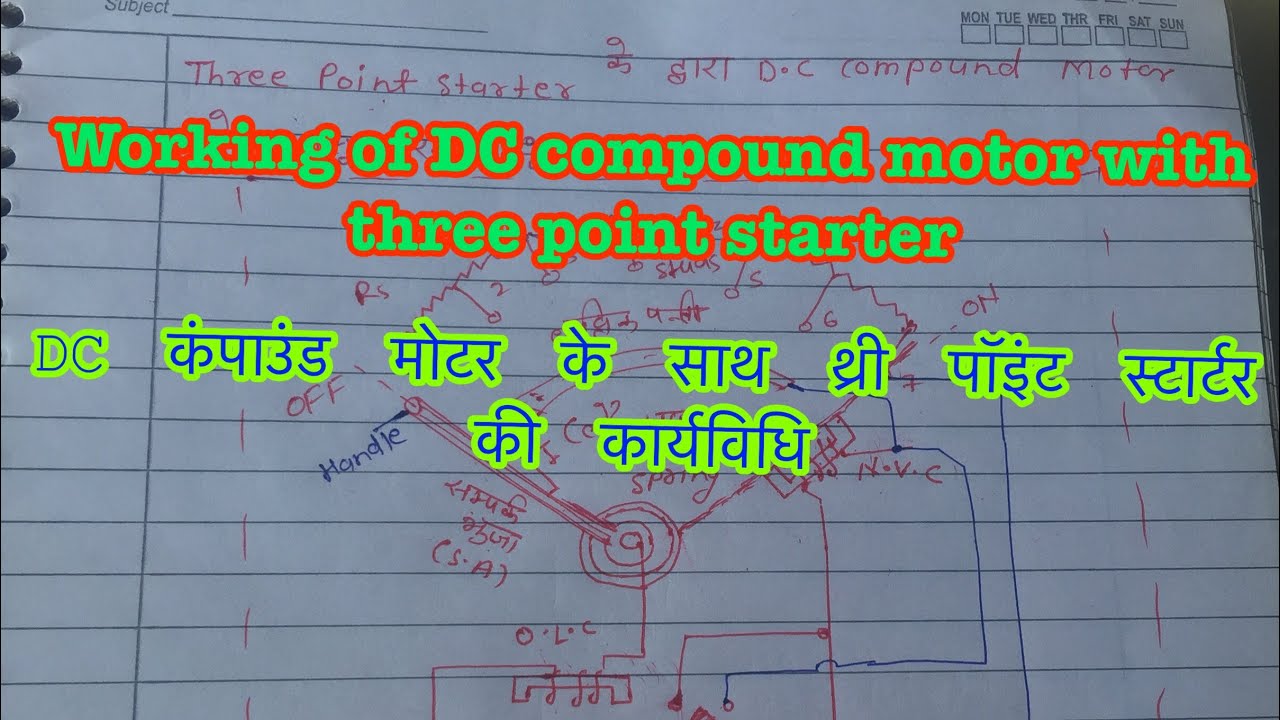 Subject
MON TUE WED THR FRI SAT SUN
Three Point Starter के द्वारा D.C Compound Motor
Working of DC compound motor with
three point starter
Studs
Rs
2
5
6
ON
DC कंपाउंड मोटर के साथ थ्री पॉइंट स्टार्टर
OFF
7
की कार्यविधि
Handle
Spring
N.V.C
सम्पर्क
भुजा
(S.A)
O.L.C